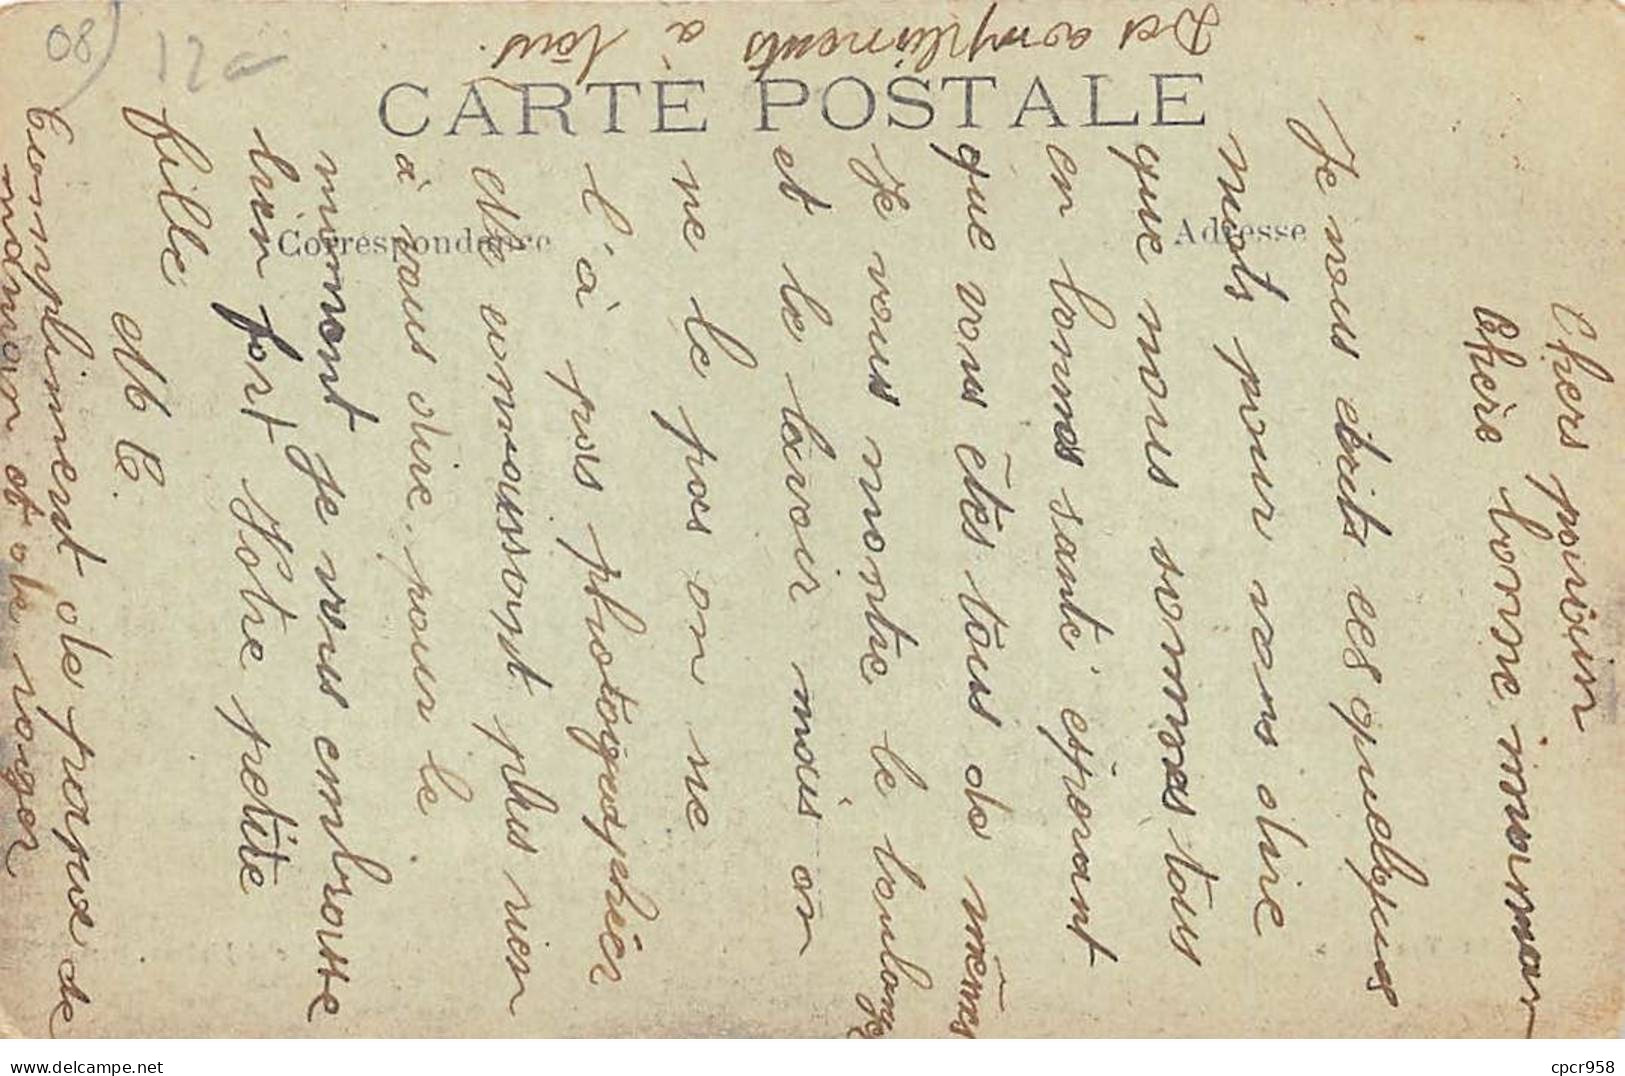 08) 12a
CARTE POSTALE
Correspondance
Adresse
Chers parain
Chère bonne maman
Je vous écrits ces quelques
mots pour vous dire
que nous sommes tous
en bonnes santé éspérant
que vous êtes tous de mêmes
Je vous montre le boulange
et le lavoir mais on
ne le pas on ne
l'a pas photographier
Me connaissant plus rien
à vous dire pour le
moment Je vous embrasse
bien fort Votre petite
fille
M C.
Compliment de papa de
maman et de roger
Des compliments à tous.
www.delcampe.net
cpcr958